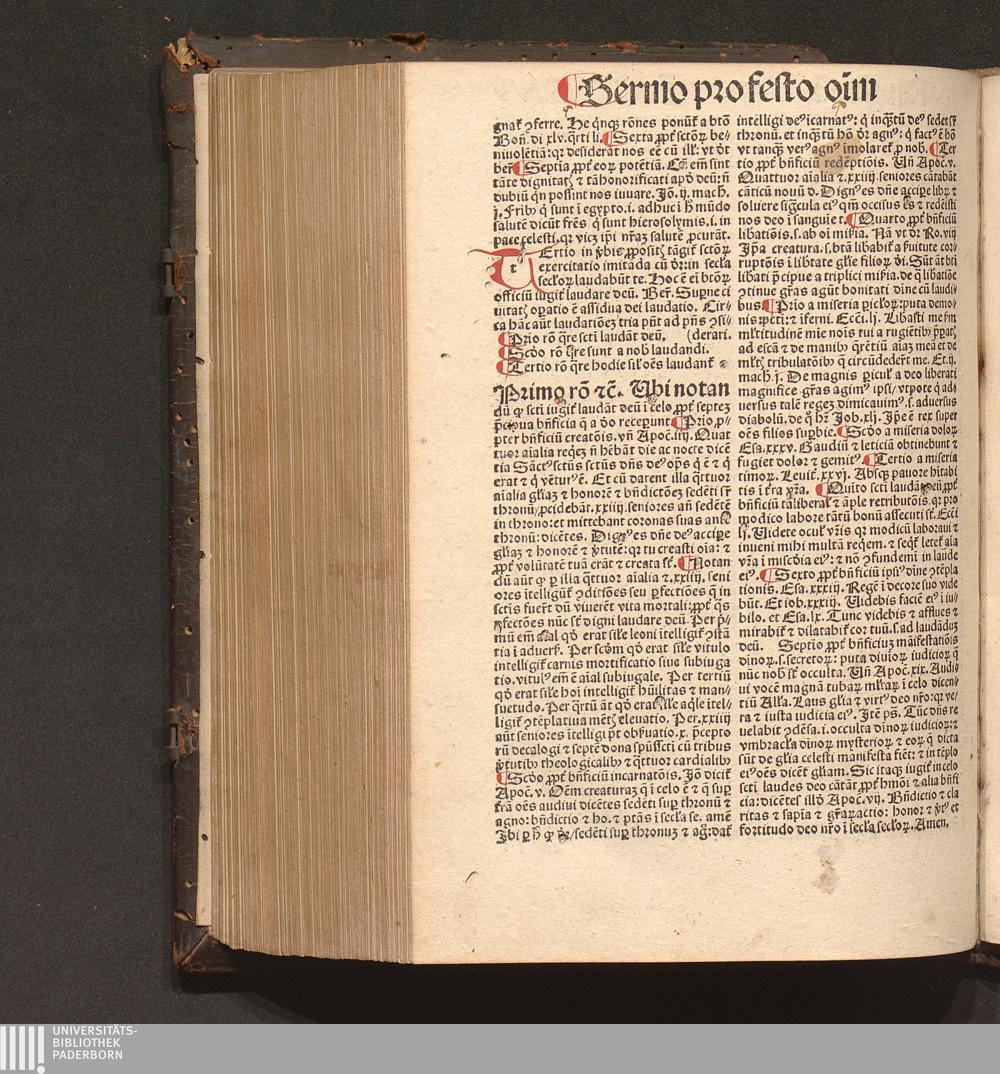 Sermo pro festo oīm
gnaꝉ ꝯferre. He q̄nqꝫ rōnes ponūt̄ a btō
Boñ. di xlv. q̄rti li. Sexta ꝓpꝉ sctōꝝ be-
niuolētiā: qꝛ desiderāt nos eē cū ill̓: vt d̄t
ber̄ Septīa ꝓpꝉ eoꝝ potētiā. Cū em̄ sint
tāte dignitatꝭ ⁊ tā honorificati apd̓ deū: ñ
dubiū qn̄ possint nos iuuare. Jō. ij. mach.
j. Frib᷒ q̄ sunt ī egypto .i. adhuc ī h̄ mūdo
salutē dicūt frēs q̄ sunt hierosolymis .i. in
pace celesti. qꝛ vicꝫ ip̄i nr̄aꝫ salutē ꝓcurāt.
Tertio in v̓bis ꝓpositꝭ tāgiꝉ sctōꝝ
exercitatio imitāda cū dr̄: in secl̓a
secl̓oꝝ laudabūt te. Hoc ē ei btōꝝ
officiū iugiꝉ laudare deū. Ber̄. Supne ci
uitatꝭ oꝑatio ē assidua dei laudatio. Cir-
ca hāc aūt laudatiōeꝫ tria pn̄t ad pn̄s ꝯsi-
Prīo rō q̄re scti laudāt deū. (derari.
Scd̓o rō q̄re sunt a nob̓ laudandi.
Tertio rō q̄re hodie sil̓ oēs laudanꝉ
Primo rō ⁊c̄. Vbi notan
dū ꝙ scti iugiꝉ laudāt deū ī celo ꝓpꝉ septeꝫ
p̄cipua bn̄ficia q̄ a dō recepunt Prīo ꝓ-
pter bn̄ficiū creatōis. vn̄ Apoc̄. iiij. Quat
tuor aīalia reqeꝫ ñ hēbāt die ac nocte dicē
tia Sāct᷒ sctūs sctūs dn̄s de᷒ op̄s q̄ ē ⁊ q̄
erat ⁊ q̄ vētur᷒ ē. Et cū darent illa q̄ttuor
aīalia gl̓iaꝫ ⁊ honorē ⁊ bn̄dictōeꝫ sedēti sꝑ
thronū ꝓcidebāt. xxiiij. seniores añ sedētē
in throno: et mittebant coronas suas ante
thronū: dicētes. Dign᷒ es dn̄e de᷒ accipe
gl̓iaꝫ ⁊ honorē ⁊ v̓tutē: qꝛ tu creasti oīa: ⁊
ꝓpꝉ volūtatē tuā erāt ⁊ creata sꝉ. Notan
dū aūt ꝙ ꝑ illa q̄ttuor aīalia ⁊. xxiiij. seni
ores ītelligūꝉ ꝯditōes seu ꝑfectiōes q̄ in
sctis fuer̄t dū viuerēt vita mortali: ꝓpꝉ q̄s
ꝑfectōes nūc sꝉ digni laudare deū. Per p̄-
mū em̄ aīal qd̓ erat sil̓e leoni ītelligiꝉ ꝯstā
tia ī aduerſ̓. Per scd̓m qd̓ erat sil̓e vitulo
intelligiꝉ carnis mortificatio siue subiuga
tio. vitul᷒ em̄ ē aīal subiugale. Per tertiū
qd̓ erat sil̓e hoī intelligiꝉ hūilitas ⁊ man-
suetudo. Per q̄rtū āt qd̓ erat sil̓e aq̄le ītel-
ligiꝉ ꝯtēplatiua mētꝭ eleuatio. Per. xxiiij
aūt seniores ītelligi p̄t obẜuatio. x. p̄cepto
rū decalogi ⁊ septē dona spūsscti cū tribus
v̓tutib᷒ theologicalib᷒ ⁊ q̄ttuor cardīalib᷒
Scd̓o ꝓpꝉ bn̄ficiū incarnatōis. Jō dicit̄
Apoc̄. v. Oēm creaturaꝫ q̄ ī celo ē ⁊ q̄ suꝑ
terrā oēs audiui dicētes sedēti suꝑ thronū ⁊
agno: bn̄dictio ⁊ ho. ⁊ ptās ī secl̓a se. amē
Jbi ꝑ h̄ ꝙ dr̄/ sedēti suꝑ thronuꝫ ⁊ ag̊: daꝉ
intelligi de᷒ īcarnat᷒: q̄ inq̄tū de᷒ sedet sꝑ
thronū. et inq̄tū hō dr̄ agn᷒: q̄ fact᷒ ē hō
vt tanqꝫ ver᷒ agn᷒ īmolareꝉ ꝓ nob̓. Ter
tio ꝓpꝉ bn̄ficiū redēptiōis. Vn̄ Apoc̄. v.
Quattuor aīalia ⁊. xxiiij. seniores cātabāt
cāticū nouū d. Dign᷒ es dn̄e accipe librꝫ ⁊
soluere sigcl̓a ei᷒ qm̄ occisus es ⁊ redēisti
nos deo ī sanguīe t. Quarto ꝓpꝉ bn̄ficiū
libatiōis .s. ab oī miẜia. Nā vt dr̄ Ro. viij
Jp̄a creatura .s. btā libabiꝉ a ẜuitute cor-
ruptōis ī libtate gl̓ie filioꝝ d̓i. Sūt āt bti
libati p̄cipue a triplici miẜia. de q̄ libatiōe
ꝯtinue gr̄as agūt bonitati dīne cū laudi-
bus. Prīo a miseria pcl̓oꝝ: puta demo-
nis: pcti: ⁊ īferni. Ecc̄i. lj. Libasti me ẜm
ml̓titudinē mīe noīs tui a rugiētib᷒ p̄paꝉ
ad escā ⁊ de manib᷒ q̄rētiū aīaꝫ meā et de
ml̓tꝭ tribulatōib᷒ q̄ circūdeder̄t me. Et. ij.
mach. j. De magnis pericul̓ a deo liberati
magnifice gr̄as agim᷒ ipsi/ vtpote q̄ ad-
uersus talē regeꝫ dimicauim᷒ .s. aduersus
diabolū. de q̄ hr̄ Job. xlj. Jp̄e ē rex super
oēs filios suꝑbie. Scd̓o a miseria doloꝝ
Esa. xxxv. Gaudiū ⁊ leticiā obtinebunt ⁊
fugiet dolor ⁊ gemit᷒. Tertio a miseria
timoꝝ. Leuiꝉ. xxvj. Absqꝫ pauore hītabi
tis ī t̄ra vr̄a. Quīto scti laudāt deū ꝓpꝉ
bn̄ficiū taliberal̓ ⁊ āple retributōis. qꝛ pro
modico labore tātū bonū assecuti sꝉ. Ecc̄i
lj. Videte ocul̓ vr̄is qꝛ modicū laboraui ⁊
inueni mihi multā reqem. ⁊ seqꝉ leteꝉ aīa
vr̄a ī miscd̓ia ei᷒: ⁊ nō ꝯfundemī in laude
ei᷒. Sexto ꝓpꝉ bn̄ficiū ipsi᷒ dīne ꝯtēpla
tionis. Esa. xxxiij. Regē ī decore suo vide
būt. Et iob. xxxiij. Videbis faciē ei᷒ ī iu-
bilo. et Esa. lx. Tunc videbis ⁊ afflues ⁊
mirabiꝉ ⁊ dilatabiꝉ cor tuū .s. ad laudāduꝫ
deū. Septīo ꝓpꝉ bn̄ficiuꝫ māifestatiōis
dīnoꝝ .s. secretoꝝ: puta diuīoꝝ iudicioꝝ q̄
nūc nob̓ sꝉ occulta. Vn̄ Apoc̄. xix. Audi-
ui vocē magnā tubaꝝ ml̓taꝝ ī celo dicen-
tiū All̓a. Laus gl̓ia ⁊ virt᷒ deo nr̄o: qꝛ ve-
ra ⁊ iusta iudicia ei᷒. Jtē pꝭ. Tūc dn̄s re
uelabit ꝯdēsa .i. occulta dīnoꝝ iudicioꝝ: ⁊
vmbracl̓a dīnoꝝ mysterioꝝ ⁊ eoꝝ q̄ dicta
sūt de gl̓ia celesti manifesta fiēt: ⁊ in tēplo
ei᷒ oēs dicēt gl̓iam. Sic itaqꝫ iugiꝉ in celo
scti laudes deo cātāt ꝓpꝉ hmōi ⁊ alia bn̄fi
cia: dicētes illd̓ Apoc̄. vij. Bn̄dictio ⁊ cla
ritas ⁊ sapīa ⁊ gr̄aꝝactio: honor ⁊ v̓t᷒ et
fortitudo deo nr̄o ī secl̓a secl̓oꝝ. Amen.
UNIVERSITÄTS-
BIBLIOTHEK
PADERBORN